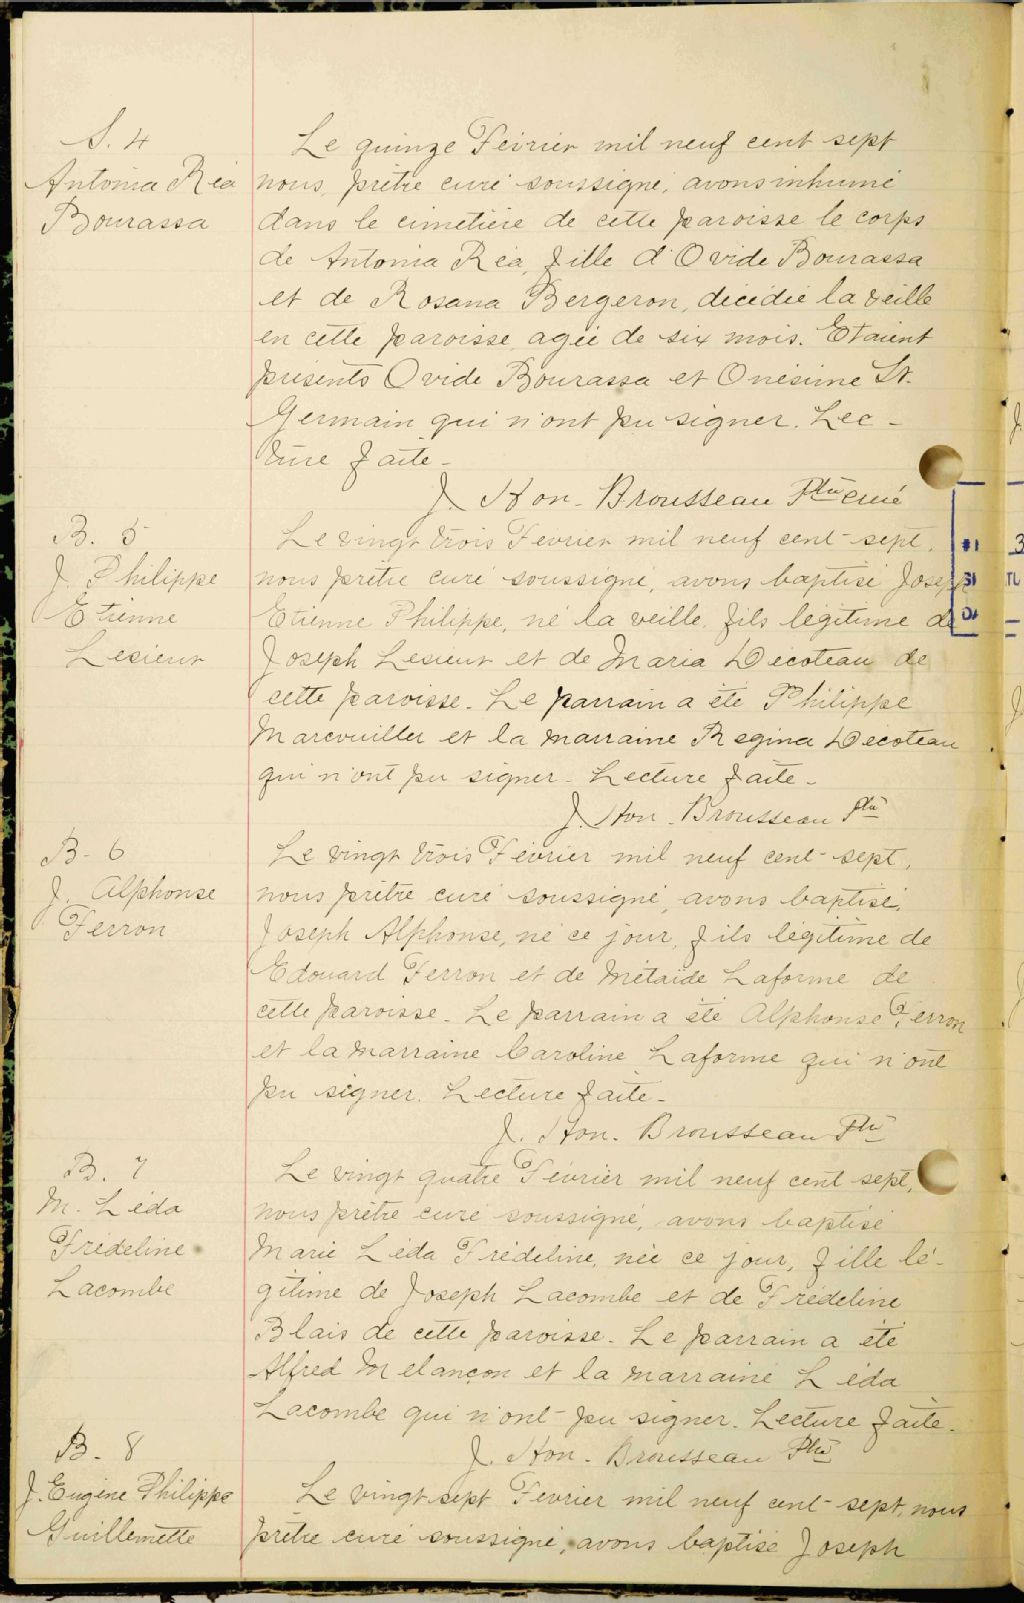 S. 4
Antonia Réa
Bourassa
Le quinze Février mil neuf cent sept
nous, prêtre curé soussigné, avons inhumé
dans le cimetière de cette paroisse le corps
de Antonia Réa, fille d'Ovide Bourassa
et de Rosana Bergeron, décédée la veille
en cette paroisse, agée de six mois. Etaient
présents Ovide Bourassa et Onésime St.
Germain qui n'ont pu signer. Lec-
ture faite-
J. Hon. Brousseau Ptre curé
B. 5
J. Philippe
Etienne
Lesieur
Le vingt trois Février mil neuf cent-sept,
nous prêtre curé soussigné, avons baptisé Joseph
Etienne Philippe, né la veille, fils légitime de
Joseph Lesieur et de Maria Décoteau de
cette paroisse. Le parrain a été Philippe
Marcouiller et la marraine Regina Décoteau
qui n'ont pu signer. Lecture faite-
J. Hon. Brousseau Ptre
B. 6
J. Alphonse
Ferron
Le vingt trois Février mil neuf cent-sept,
nous prêtre curé soussigné, avons baptisé,
Joseph Alphonse, né ce jour, fils légitime de
Edouard Ferron et de Métaïde Laforme de
cette paroisse. Le parrain a été Alphonse Ferron
et la marraine Caroline Laforme qui n'ont
pu signer. Lecture faite-
J. Hon. Brousseau Ptre
B. 7
M. Léda
Frédeline
Lacombe
Le vingt quatre Février mil neuf cent sept,
nous prêtre curé soussigné, avons baptisé
Marie Léda Frédeline, née ce jour, fille lé-
gitime de Joseph Lacombe et de Frédeline
Blais de cette paroisse. Le parrain a été
Alfred Melançon et la marraine Léda
Lacombe qui n'ont pu signer. Lecture faite.
J. Hon. Brousseau Ptre
B. 8
J. Eugène Philippe
Guillemette
Le vingt sept Février mil neuf cent-sept, nous
prêtre curé soussigné, avons baptisé Joseph